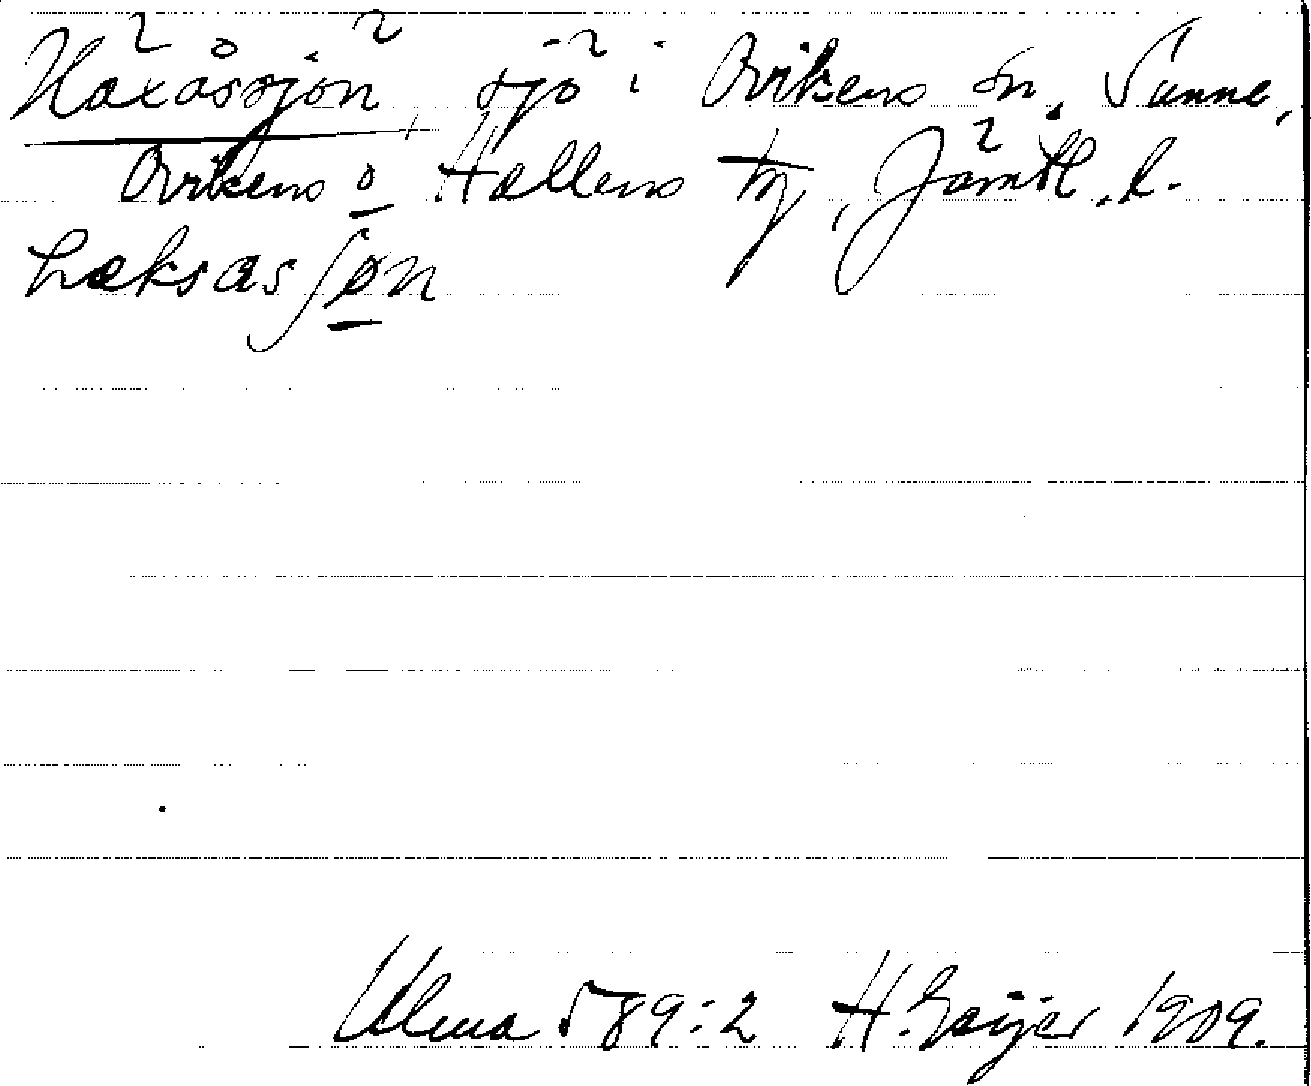 Häxåssjön, sjö i Ovikens sn, Sunne,
Ovikens o Hallens tg, Jämtl. l.
hæksasjøn
Ulma 589:2 H. Geijer 1909.